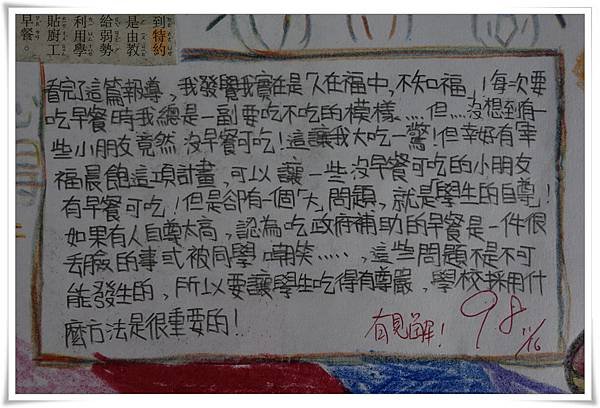 到特約
是由教
給弱勢
利用學
貼廚工
早餐。
看完了這篇報導，我發覺我實在是「人在福中，不知福」！每次要
吃早餐時我總是一副要吃不吃的模樣……但……沒想到有一
些小朋友竟然沒早餐可吃！這讓我大吃一驚！但幸好有幸
福晨飽這項計畫，可以讓一些沒早餐可吃的小朋友
有早餐可吃！但是卻有一個「大」問題，就是學生的自尊！
如果有人自尊太高，認為吃政府補助的早餐是一件很
丟臉的事或被同學嘲笑……，這些問題不是不可
能發生的，所以要讓學生吃得有尊嚴，學校採用什
麼方法是很重要的！
有見解！ 98 11/16